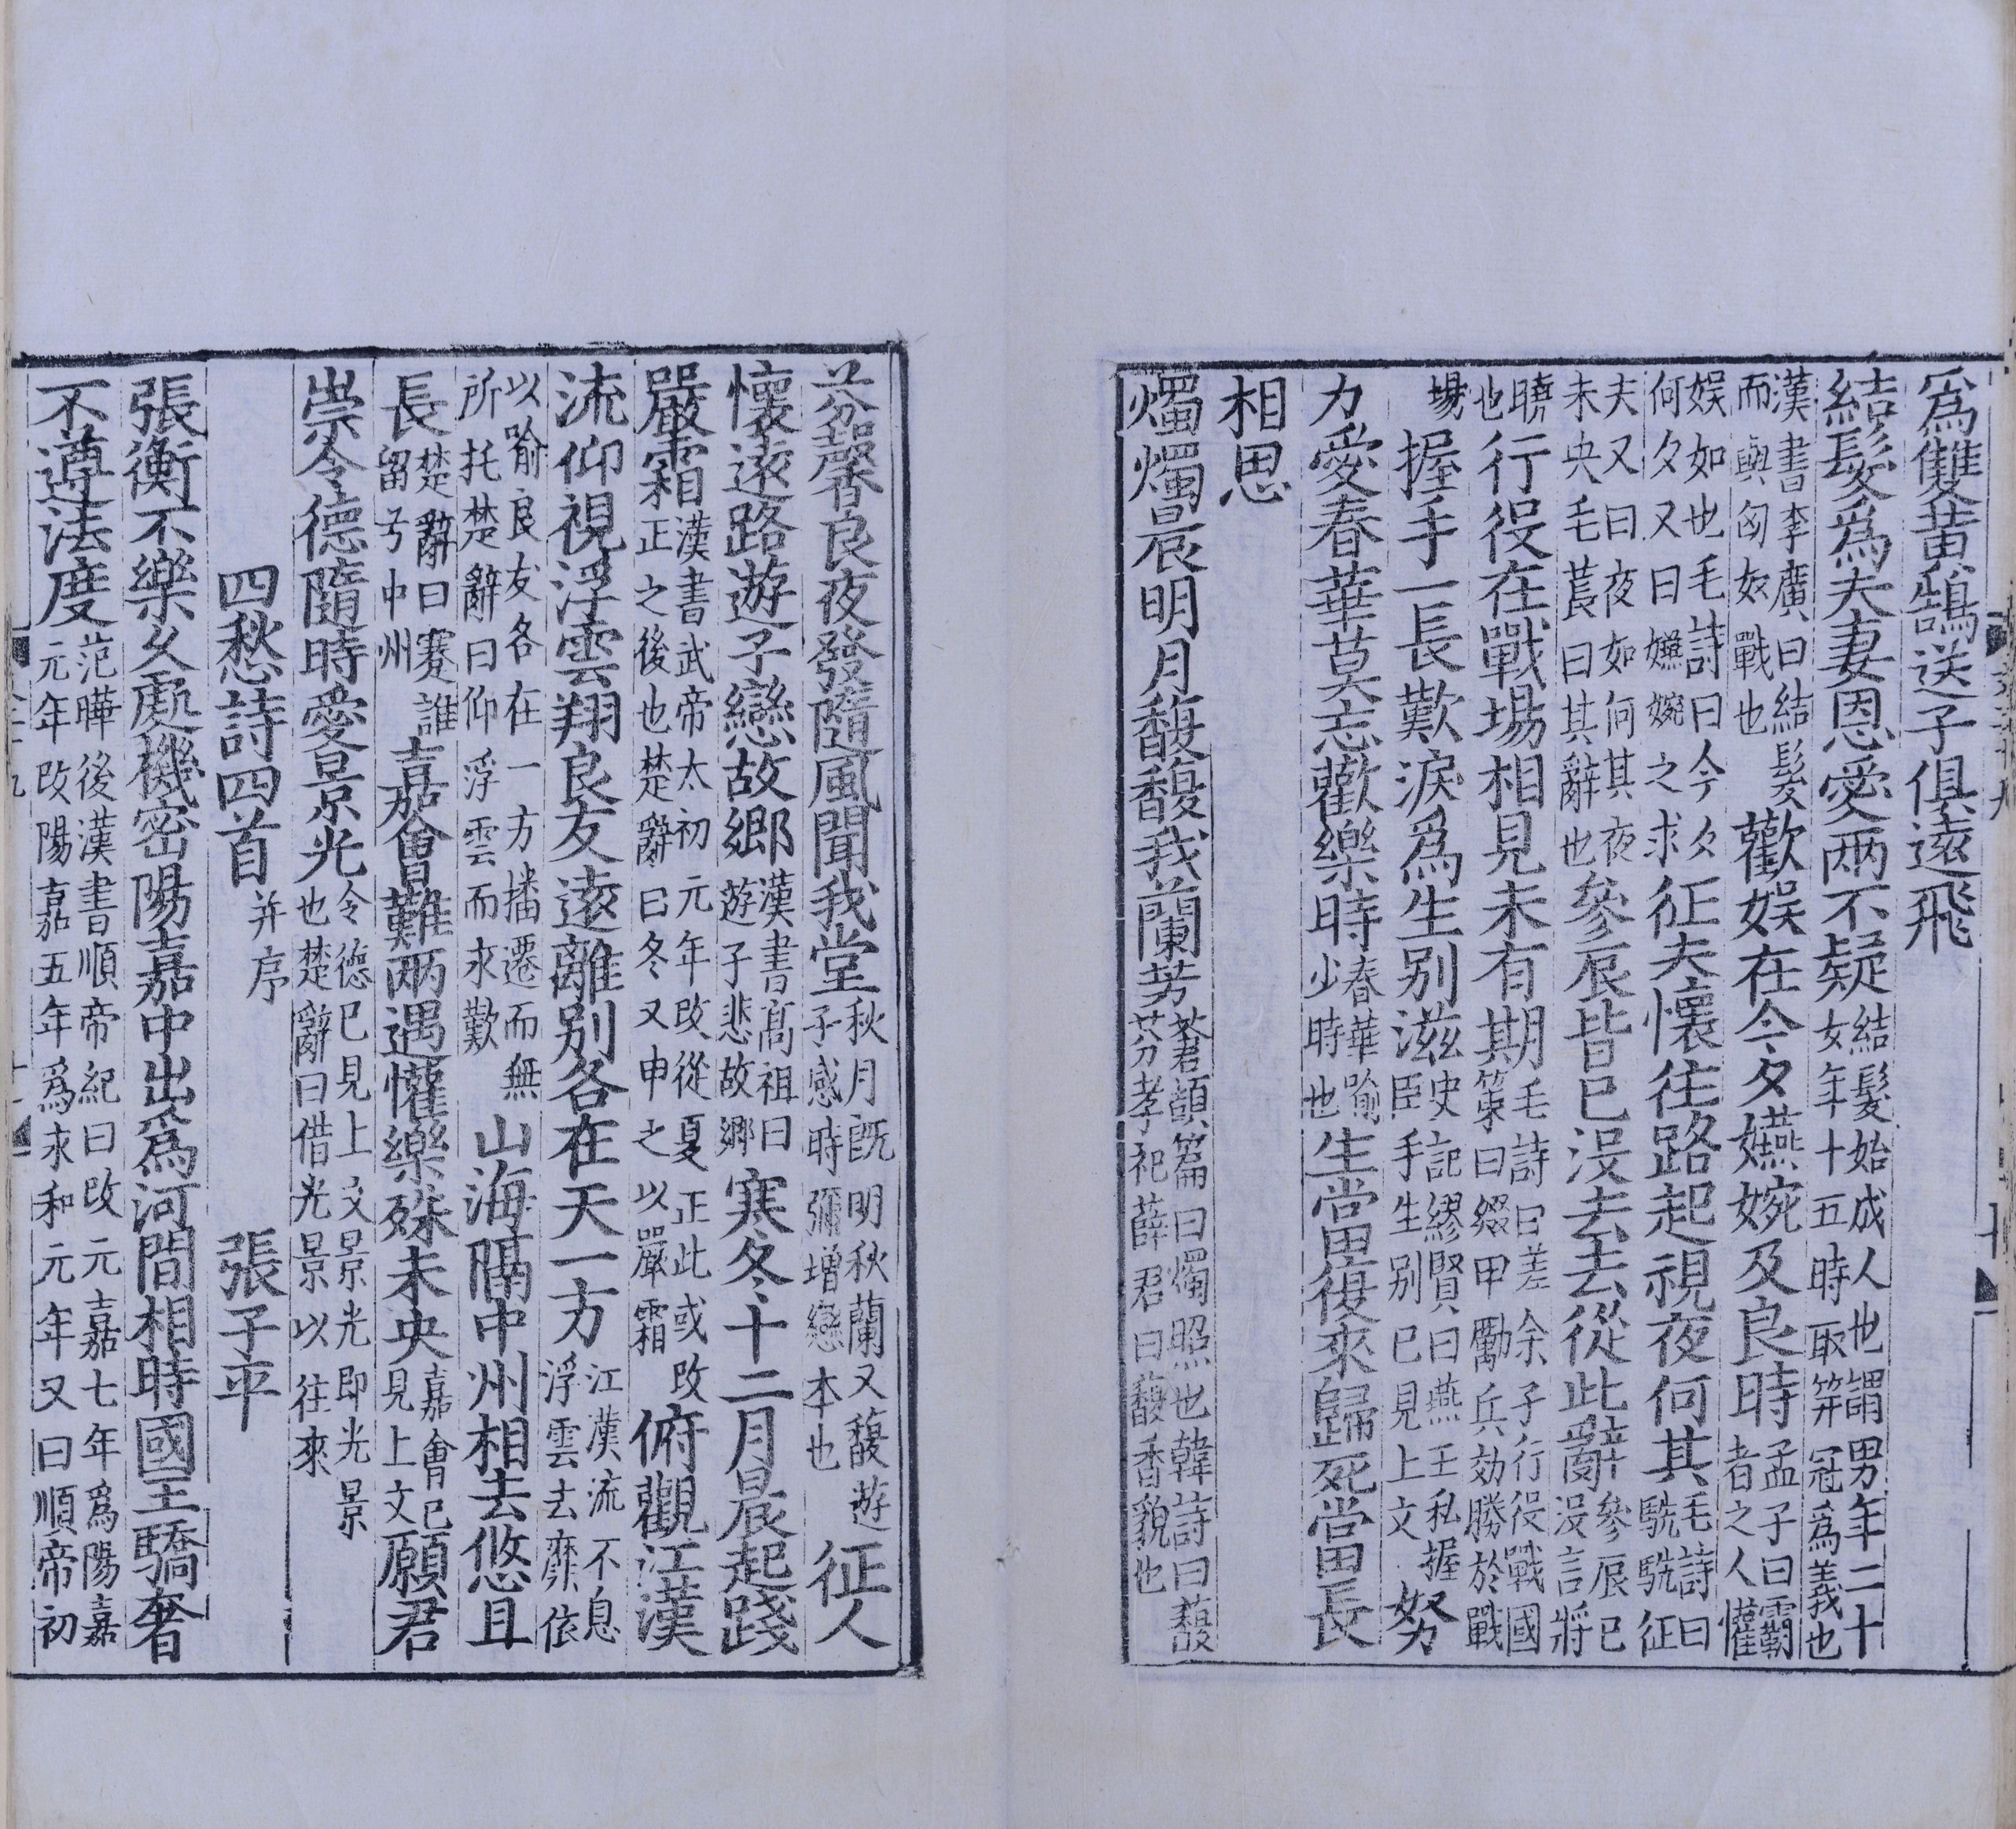 爲雙黄鵠送子俱遠飛
結髮爲夫妻恩愛兩不疑結髮始成人也謂男年二十女年十五時取筓冠爲義也
漢書李廣曰結髮而與匈奴戰也歡娱在今夕嬿婉及良時孟子曰霸者之人懽
娱如也毛詩曰今夕何夕又曰嬿婉之求征夫懷往路起視夜何其毛詩曰駪駪征
夫又曰夜如何其夜未央毛萇曰其辭也參辰皆已没去去從此辭參辰已没言將
曉也行役在戰場相見未有期毛詩曰嗟余子行役戰國策曰綴甲勵兵効勝於戰
場握手一長歎淚爲生别滋史記繆賢曰燕王私握臣手生别已見上文努
力愛春華莫忘歡樂時春華喻少時也生當復來歸死當長
相思
燭燭晨明月馥馥我蘭芳蒼頡篇曰燭照也韓詩曰馥芬孝祀薛君曰馥香貌也
芬馨良夜發隨風聞我堂秋月旣明秋蘭又馥遊子感時彌增戀本也征人
懷遠路遊子戀故鄉漢書髙祖曰遊子悲故鄉寒冬十二月晨起踐
嚴霜漢書武帝太初元年改從夏正此或改正之後也楚辭曰冬又申之以嚴霜俯觀江漢
流仰視浮雲翔良友遠離别各在天一方江漢流不息浮雲去靡依
以喻良友各在一方播遷而無所托楚辭曰仰浮雲而永歎山海隔中州相去悠且
長楚辭曰蹇誰留兮中州嘉會難兩遇懽樂殊未央嘉會已見上文願君
崇令德隨時愛景光令德已見上文景光即光景也楚辭曰借光景以往來
四愁詩四首并序　張子平
張衡不樂久處機密陽嘉中出爲河間相時國王驕奢
不遵法度范曄後漢書順帝紀曰改元嘉七年爲陽嘉元年改陽嘉五年爲永和元年又曰順帝初